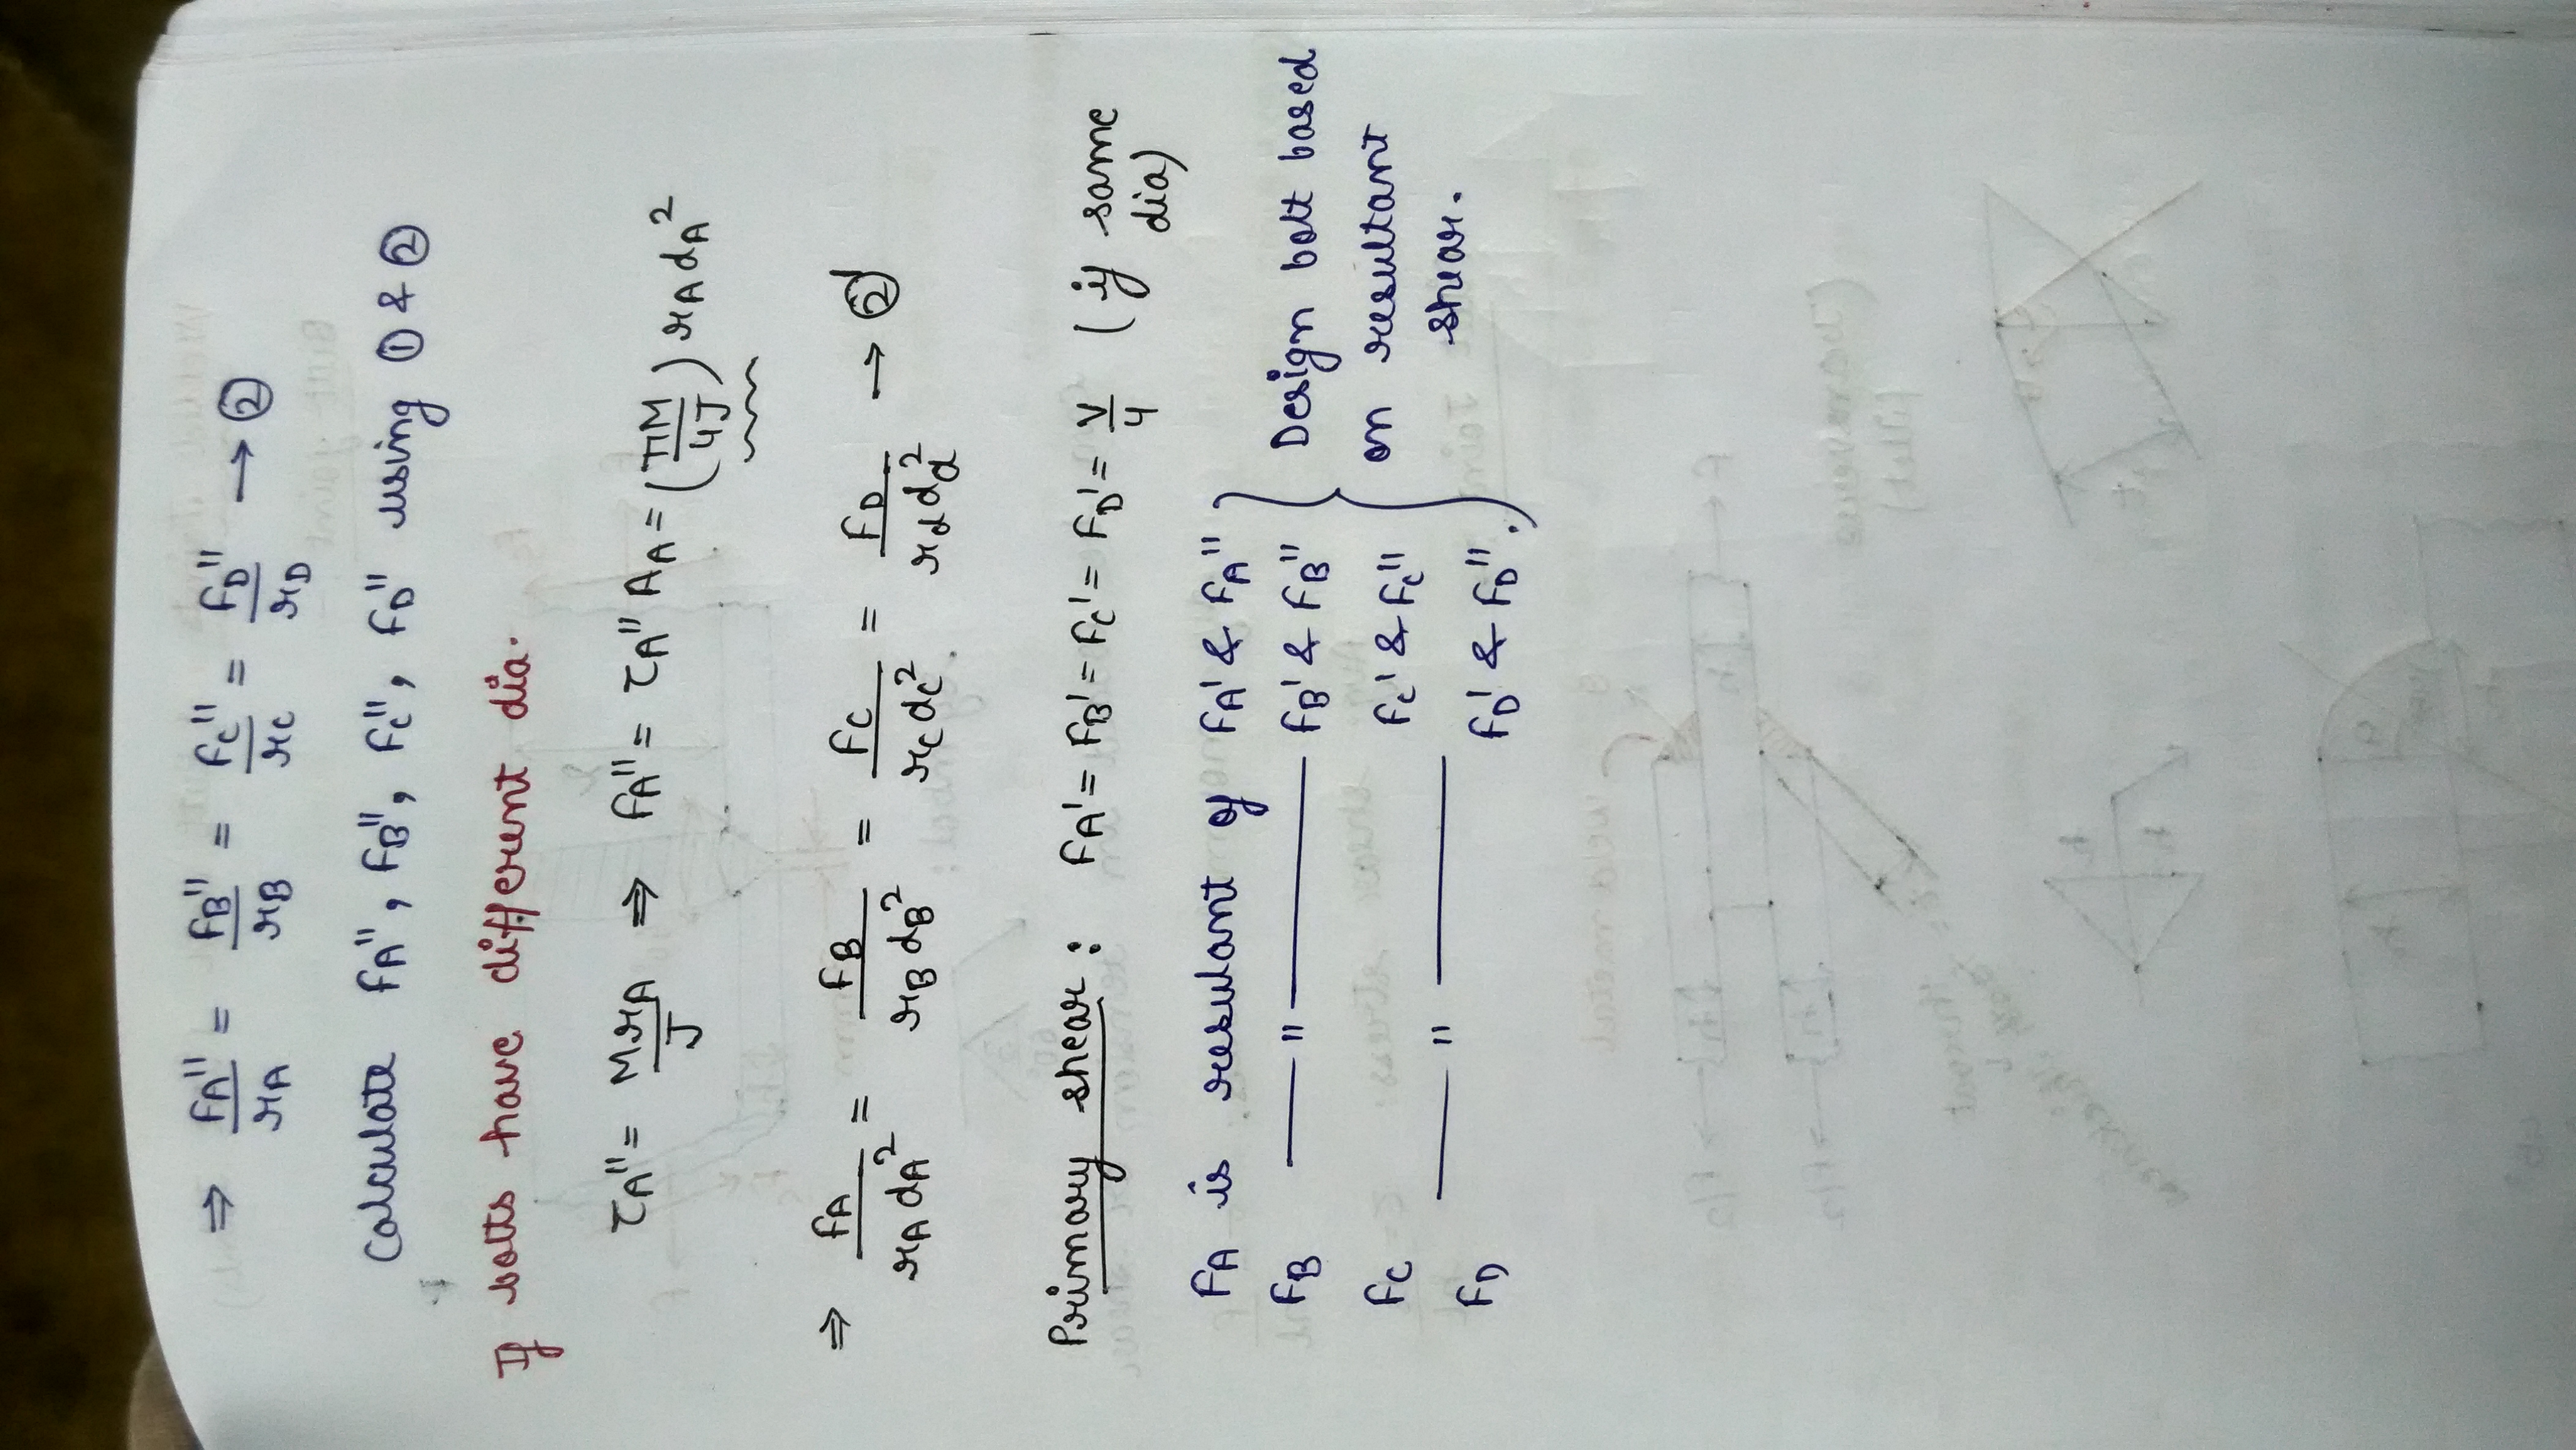 ⇒ FA"/rA = FB"/rB = FC"/rC = FD"/rD → ②
Calculate FA", FB", FC", FD" using ① & ②
If bolts have different dia.
τA" = MrA/J ⇒ FA" = τA" AA = (πM/4J) rA dA²
⇒ FA/rA dA² = FB/rB dB² = FC/rC dC² = FD/rd dd² → ②'
Primary shear: FA' = FB' = FC' = FD' = V/4 (if same
dia)
FA is resulant of FA' & FA"
FB — " — FB' & FB"
FC FC' & FC"
— " —
FD FD' & FD".
Design bolt based
on resultant
shear.